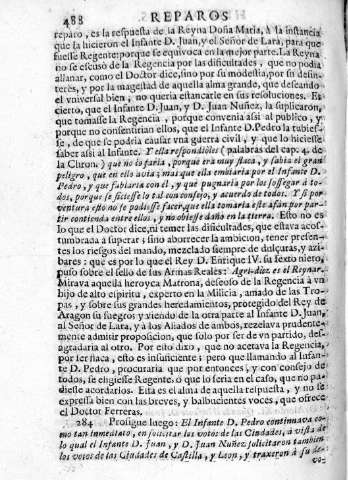 488 REPAROS
reparo, es la respuesta de la Reyna Doña Maria, à la instancia
que la hicieron el Infante D. Juan, y el Señor de Lara, para que
fuesse Regente: porque se equivoca en la mejor parte. La Reyna
no se escusò de la Regencia por las dificultades, que no podia
allanar, como el Doctor dice, sino por su modestia, por su desin-
terès, y por la magestad de aquella alma grande, que deseando
el vniversal bien, no queria estancarle en sus resoluciones. Es
cierto, que el Infante D. Juan, y D. Juan Nuñez, la suplicaron,
que tomasse la Regencia, porque convenia assi al publico, y
porque no consentirian ellos, que el Infante D. Pedro la tubies-
se, de que se podria causar vna guerra civil, y que lo hiciesse
saber assi al Infante. Y ella respondiòles (palabras del cap. 4. de
la Chron.) que no lo faria, porque era muy flaca, y sabia el gran
peligro, que en ello avia; mas que ella embiaria por el Infante D.
Pedro, y que fablaria con èl, y què pugnaria por los sossegar à to-
dos, porque se ficiesse lo tal con consejo, y acuerdo de todos. Y si por
ventura esto no se podiesse facer, que ella tomaria este afàn por par-
tir contienda entre ellos, y no obiesse daño en la tierra. Esto no es
lo que el Doctor dice, ni temer las dificultades, que estava acos-
tumbrada à superar; sino aborrecer la ambicion, tener presen-
tes los riesgos del mando, mezclado siempre de dulçuras, y azi-
bares: que es por lo que el Rey D. Enrique IV. su sexto nieto,
puso sobre el sello de sus Armas Reales: Agri-dulce es el Reynar.
Mirava aquella heroyca Matrona, deseoso de la Regencia à vn
hijo de alto espiritu, experto en la Milicia, amado de las Tro-
pas, y sobre sus grandes heredamientos, protegido del Rey de
Aragon su suegro; y viendo de la otra parte al Infante D. Juan,
al Señor de Lara, y à los Aliados de ambos, rezelava prudente-
mente admitir proposicion, que solo por ser de vn partido, des-
agradaria al otro. Por esto dixo, que no acetava la Regencia,
por ser flaca, esto es insuficiente; pero que llamando al Infan-
te D. Pedro, procuraria que por entonces, y con consejo de
todos, se eligiesse Regente: ò que lo seria en el caso, que no pu-
diesse acordarlos. Esta es el alma de aquella respuesta, y no se
expressa bien con las breves, y balbucientes voces, que ofrece
el Doctor Ferreras.
284 Prosigue luego: El Infante D. Pedro continuava co-
mo tan inmediato, en solicitar los votos de las Ciudades, à vista de
lo qual el Infante D. Juan, y D. Juan Nuñez solicitaron tambien
los votos de las Ciudades de Castilla, y Leon, y traxeron à su de-
vo-